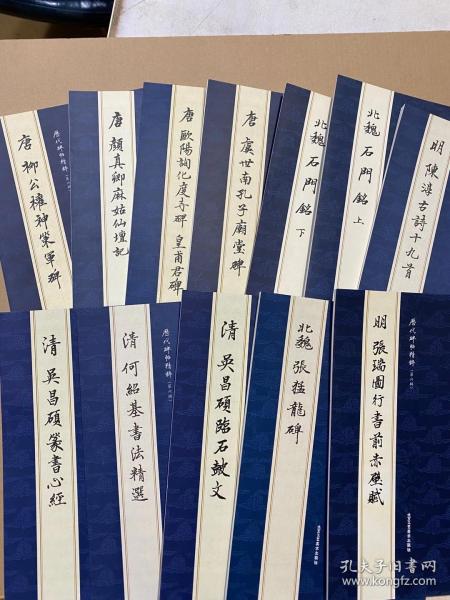 唐 柳公權神策軍碑
歷代碑帖精粹
唐 顏真卿麻姑仙壇記
唐 歐陽詢化度寺碑 皇甫君碑
唐 虞世南孔子廟堂碑
北魏 石門銘 下
北魏 石門銘 上
明 陳淳古詩十九首
清 吳昌碩篆書心經
清 何紹基書法精選
歷代碑帖精粹
清 吳昌碩臨石鼓文
北魏 張猛龍碑
明 張瑞圖行書前赤壁賦
歷代碑帖精粹
孔夫子旧书网
www.kongfz.com